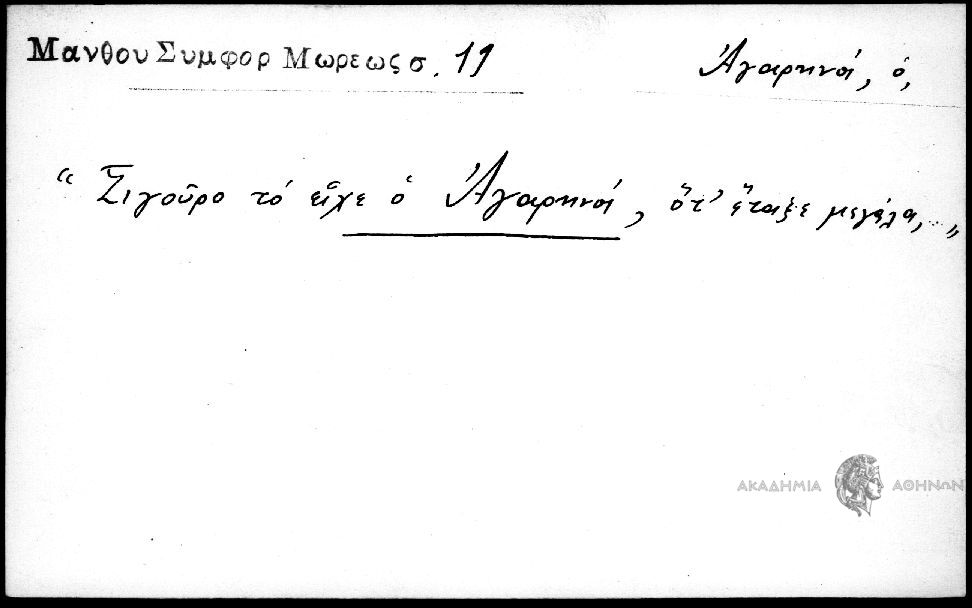 Μανθου Συμφορ Μωρεως σ. 19
Ἀγαρηνός, ὁ,
“ Σιγοῦρο τό εἶχε ὁ Ἀγαρηνός, ὅτ’ ἔταξε μεγάλα, ... ”
ΑΚΑΔΗΜΙΑ ΑΘΗΝΩΝ